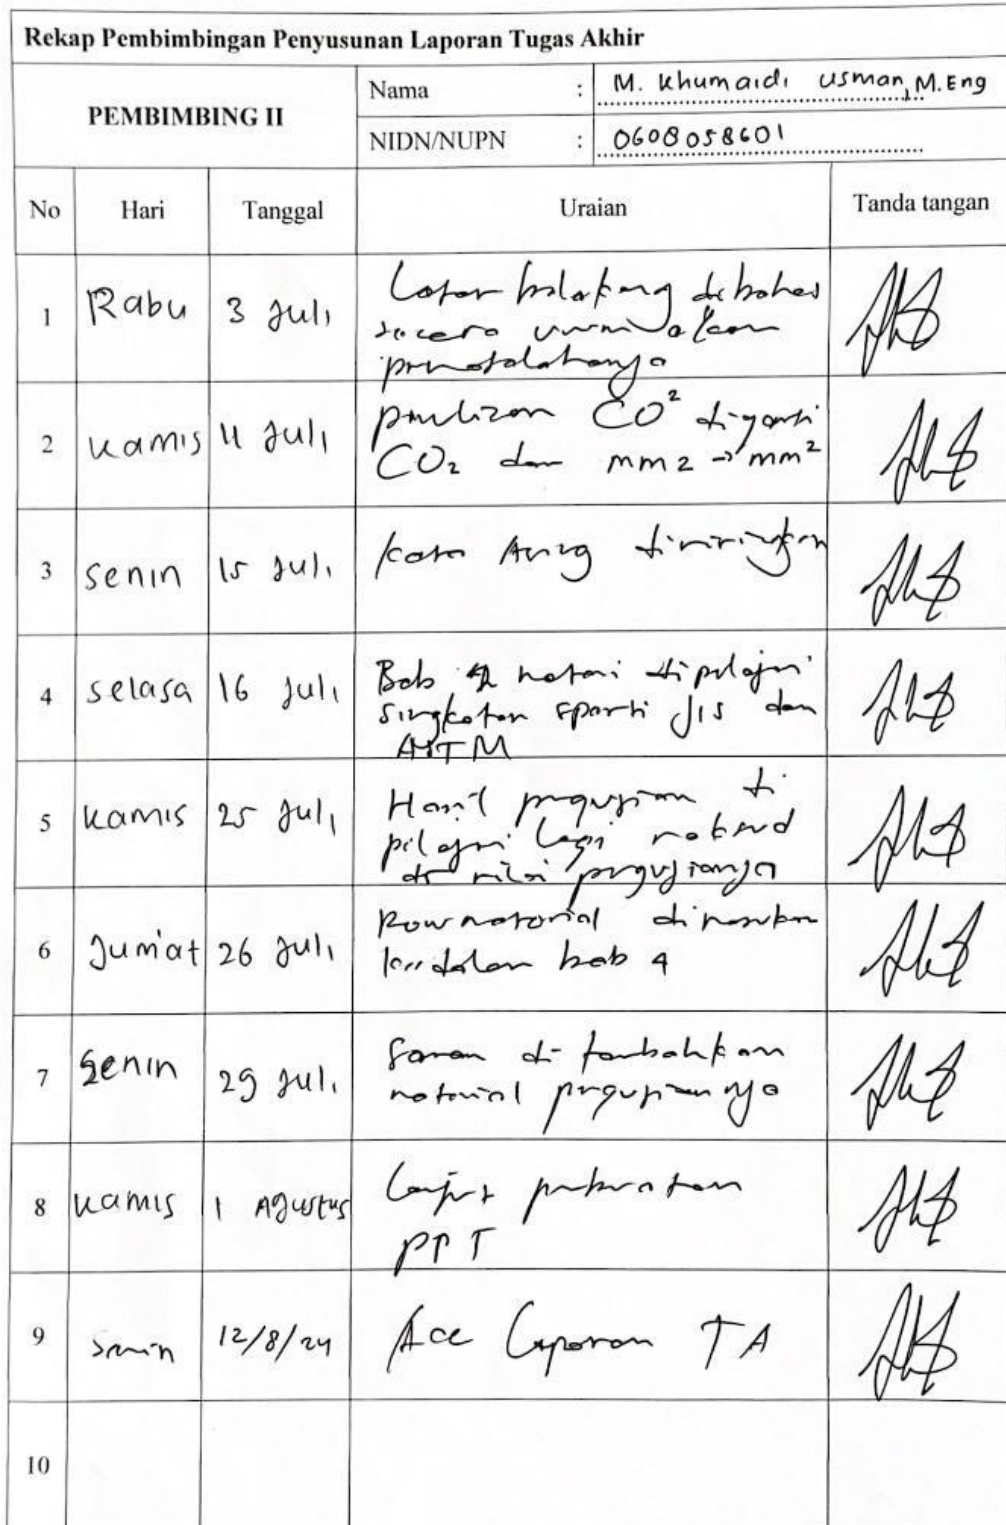 Rekap Pembimbingan Penyusunan Laporan Tugas Akhir
PEMBIMBING II
Nama : M. Khumaidi Usman, M.Eng
NIDN/NUPN : 0608058601
No Hari Tanggal Uraian Tanda tangan
1 Rabu 3 Juli Latar belakang dibahas
secara umum
2 Kamis 11 Juli CO² diganti
CO₂ dan mm2 → mm²
3 Senin 15 Juli kata Asing dimiringkan
4 Selasa 16 Juli Bab materi dipelajari
singkatan sparti JIS dan
ASTM
5 Kamis 25 Juli Hasil pengujian di
pelajari lagi maksud
pengujianya
6 Jum'at 26 Juli Raw material dimasukan
kedalam bab 4
7 Senin 29 Juli Saran di tambahkan
material pengujiannya
8 Kamis 1 Agustus Lanjut pembuatan
PPT
9 Senin 12/8/24 Acc Laporan TA
10